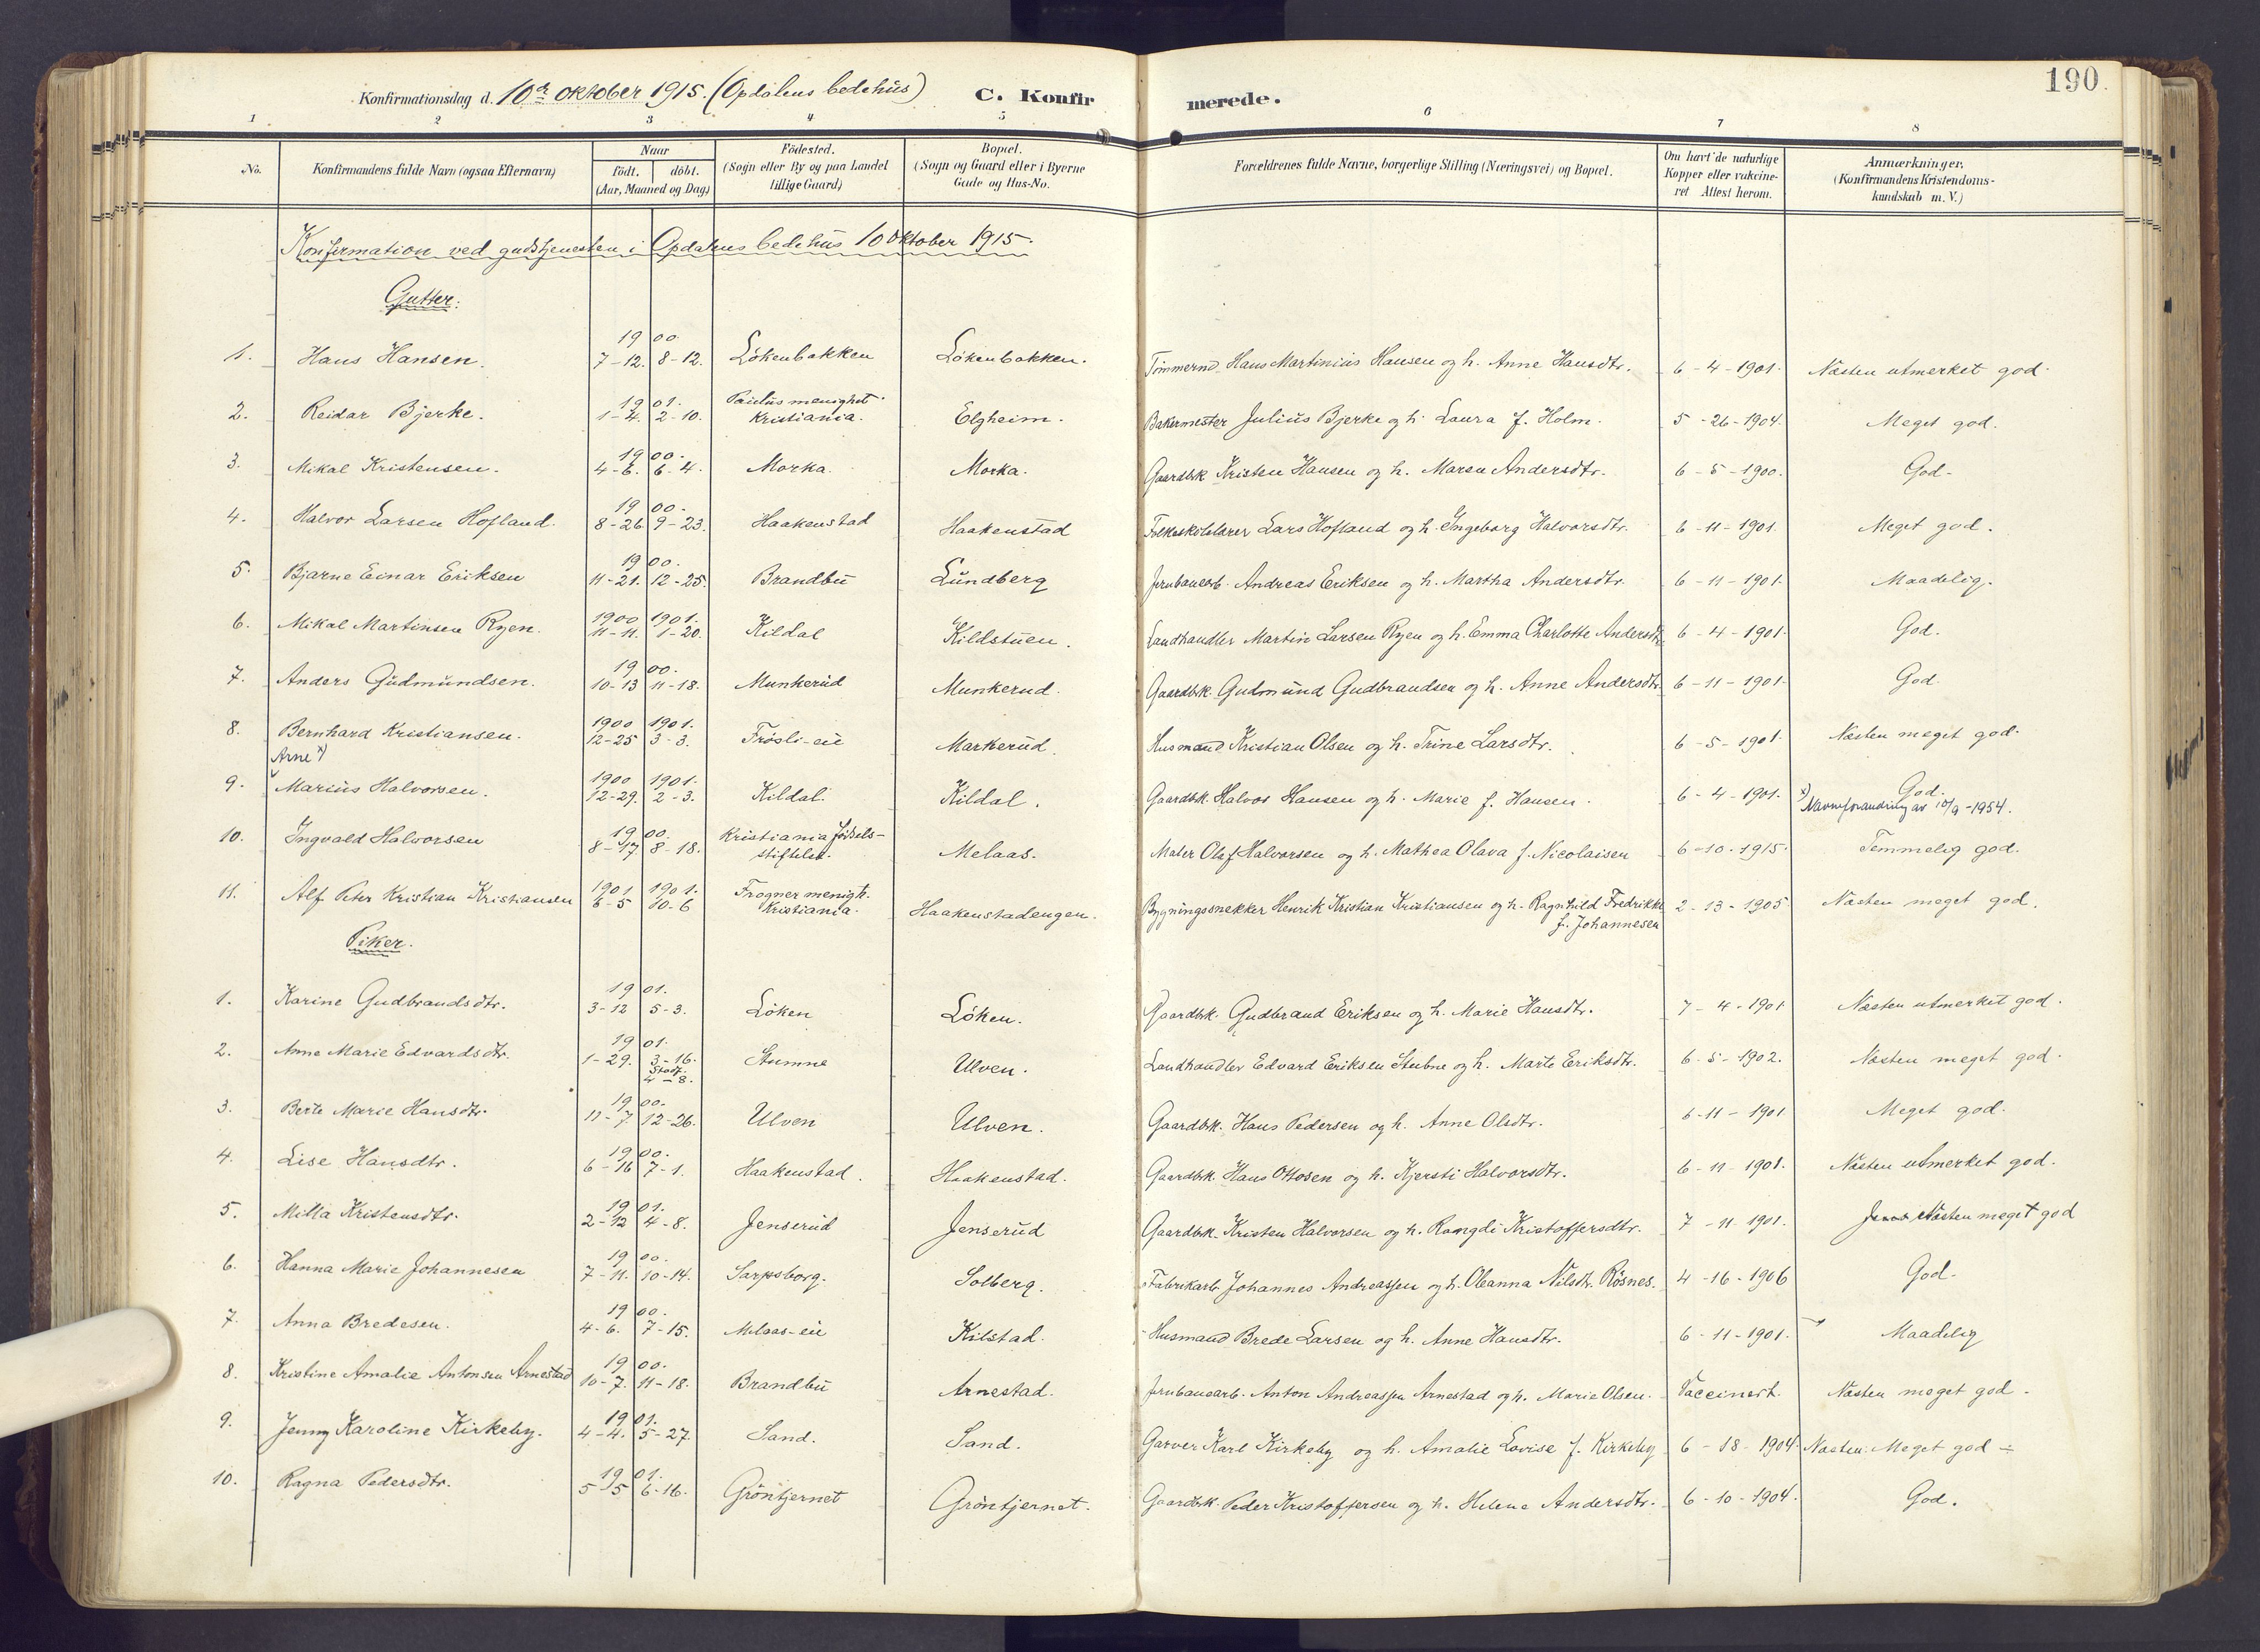 190.
Konfirmationsdag d. 10de oktober 1915. (Opdalens bedehus) C. Konfirmerede.
1 2 3 4 5 6 7 8
No. Konfirmandens fulde Navn (ogsaa Efternavn) Naar födt. döbt. (Aar, Maaned og Dag) Födested. (Sogn eller By og paa Landet tillige Gaard) Bopæl. (Sogn og Gaard eller i Byerne Gade og Hus-No. Forældrenes fulde Navne, borgerlige Stilling (Næringsvei) og Bopæl. Om havt de naturlige Kopper eller vakcineret Attest herom. Anmærkninger. (Konfirmandens Kristendomskundskab m. V.)
Konfirmation ved gudstjenesten i Opdalens bedehus 10 oktober 1915.
Gutter:
1. Hans Hansen. 1900 7-12. 8-12. Lökenbakken Lökenbakken. Tömmermd. Hans Martinius Hansen og h. Anne Hansdtr. 6-4-1901. Næsten utmerket god.
2. Reidar Bjerke. 1901. 1-4. 2-10. Paulus menighet. Kristiania. Elgheim. Bakermester Julius Bjerke og h. Laura f. Holm. 5-26-1904. Meget god.
3. Mikal Kristensen. 1900. 4-6. 6-4. Morka. Morka. Gaardbk. Kristen Hansen og h. Maren Andersdtr. 6-5-1900. God.
4. Halvor Larsen Hofland. 1900. 8-26 9-23. Haakenstad Haakenstad Folkeskolelærer Lars Hofland og h. Ingeborg Halvorsdtr. 6-11-1901. Meget god.
5. Bjarne Einar Eriksen 1900. 11-21. 12-25. Brandbu Lundberg Jernbanearb. Andreas Eriksen og h. Martha Andersdtr. 6-11-1901. Maadelig.
6. Mikal Martinsen Ryen. 1900 1901. 11-11. 1-20. Kildal Kildstuen. Landhandler Martin Larsen Ryen og h. Emma Charlotte Andersdtr. 6-4-1901. God.
7. Anders Gudmundsen. 1900. 10-13 11-18. Munkerud Munkerud. Gaardbk. Gudmund Gudbrandsen og h. Anne Andersdtr. 6-11-1901. God.
8. Bernhard Kristiansen. 1900 1901. 12-25 3-3. Frösli-eie Markerud. Husmand Kristian Olsen og h. Trine Larsdtr. 6-5-1901. Næsten meget god.
Arne x)
9. Marius Halvorsen. 1900 1901. 12-29. 2-3. Kildal. Kildal. Gaardbk. Halvor Hansen og h. Marie f. Hansen. 6-4-1901. God.
x) Navneforandring av 10/9-1954.
10. Ingvald Halvorsen 1900. 8-17 8-18. Kristiania fødselsstiftelse. Melaas. Maler Olaf Halvorsen og h. Mathea Olava f. Nicolaisen 6-10-1915. Temmelig god.
11. Alf Peter Kristian Kristiansen 1901 1901. 6-5 10-6 Frogner menigh. Kristiania. Haakenstadengen. Bygningssnekker Henrik Kristian Kristiansen og h. Ragnhild Fredrikke f. Johannesen 2-13-1905 Næsten meget god.
Piker.
1. Karine Gudbrandsdtr. 1901. 3-12 5-3. Löken Löken. Gaardbk. Gudbrand Eriksen og h. Marie Hansdtr. 7-4-1901 Næsten utmerket god.
2. Anne Marie Edvardsdtr. 1901. 1-29. 3-16. Stadf. 4-8. Stumne Ulven. Landhandler Edvard Eriksen Stubne og h. Marte Eriksdtr. 6-5-1902. Næsten meget god.
3. Berte Marie Hansdtr. 1900. 11-7. 12-26. Ulven Ulven. Gaardbk. Hans Pedersen og h. Anne Olsdtr. 6-11-1901 Meget god.
4. Lise Hansdtr. 1900. 6-16 7-1. Haakenstad. Haakenstad. Gaardbk. Hans Ottosen og h. Kjersti Halvorsdtr. 6-11-1901. Næsten utmerket god.
5. Milla Kristensdtr. 1901. 2-12 4-8. Jenserud Jenserud Gaardbk. Kristen Halvorsen og h. Rangdi Kristoffersdtr. 7-11-1901. Næsten meget god
6. Hanna Marie Johannesen 1900. 7-11. 10-14. Sarpsborg. Solberg. Fabrikarb. Johannes Andreassen og h. Oleanna Nilsdtr. Rösnes. 4-16-1906 God.
7. Anna Bredesen. 1900. 4-6. 7-15. Melaas-eie Kilstad. Husmand Brede Larsen og h. Anne Hansdtr. 6-11-1901. Maadelig
8. Kristine Amalie Antonsen Arnestad 1900. 10-7. 11-18. Brandbu Arnestad. Jernbanearb. Anton Andreassen Arnestad og h. Marie Olsen. Vaccinert. Næsten meget god.
9. Jenny Karoline Kirkeby. 1901. 4-4. 5-27. Sand. Sand. Garver Karl Kirkeby og h. Amalie Lovise f. Kirkeby 6-18-1904. Næsten Meget god ÷
10. Ragna Pedersdtr. 1901. 5-5 6-16. Gröntjernet Gröntjernet. Gaardbk. Peder Kristoffersen og h. Helene Andersdtr. 6-10-1904. God.